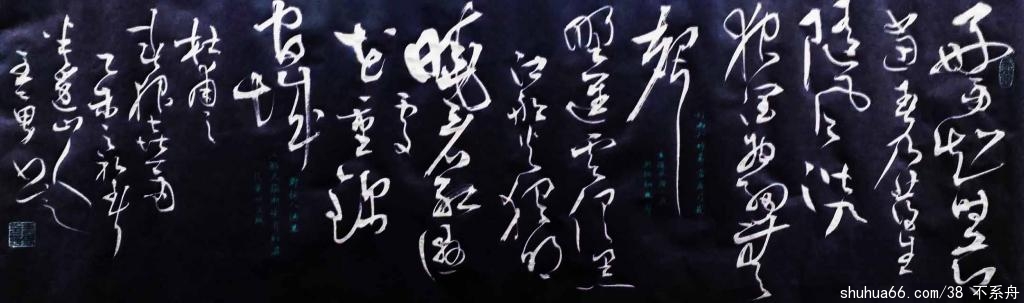 好雨知时节
当春乃发生
随风潜入
夜润物细无
声
野径云俱黑
江船火独明
晓看红湿
处
花重锦
官城
杜甫之
春夜喜雨
乙未之初春
shuhua66.com/38 不系舟